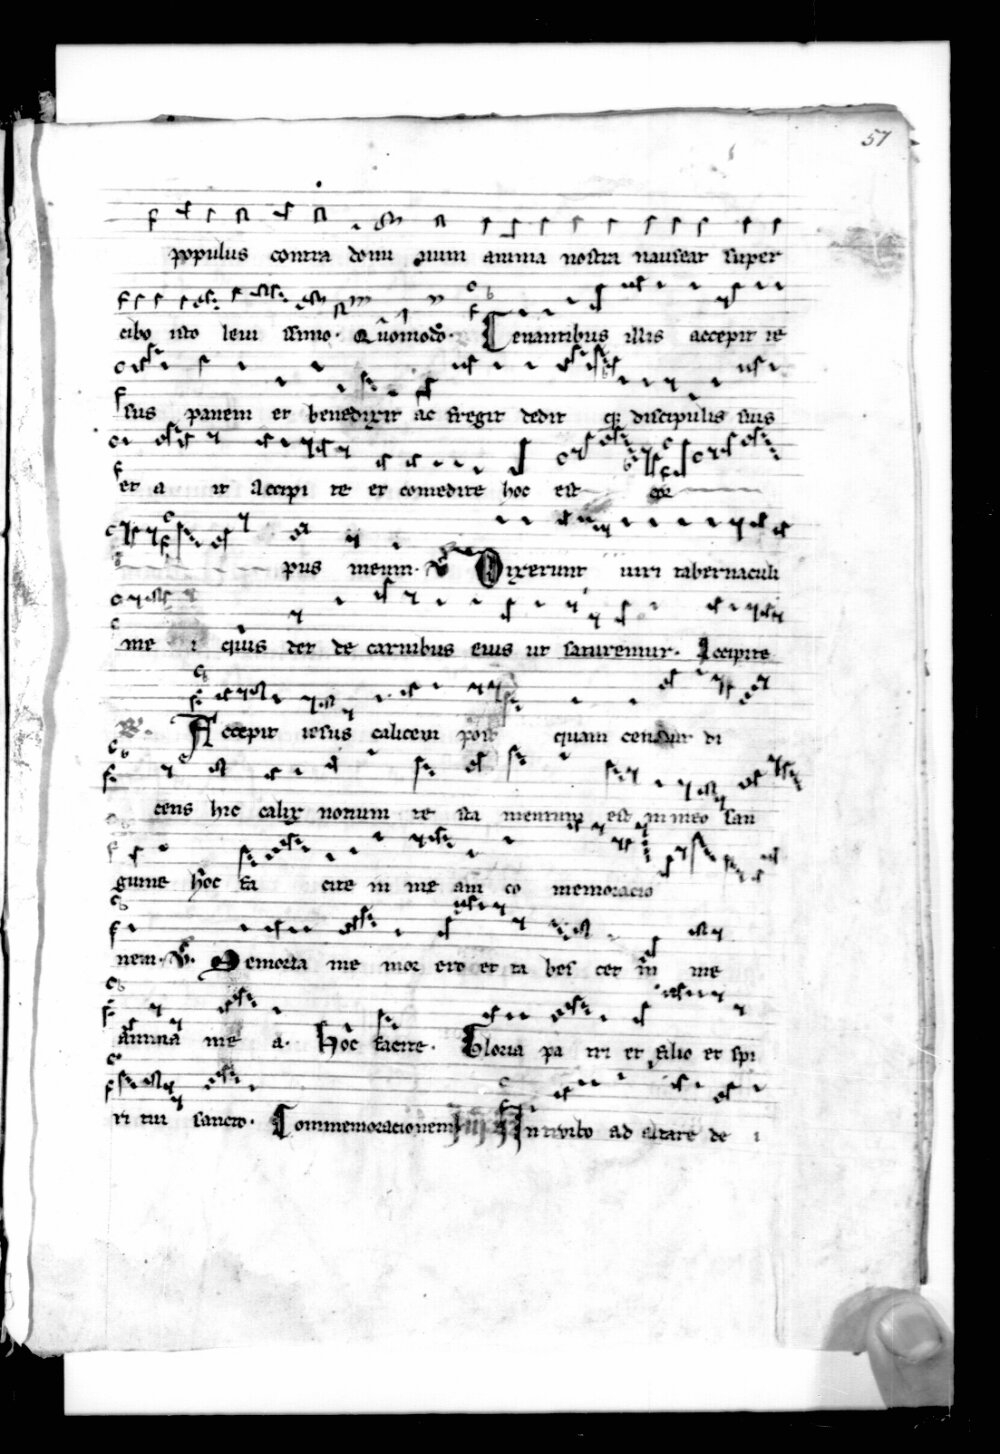 57
populus contra domi num anima nostra nauseat super
cibo isto leui ssimo. Quomodo. Cenantibus illis accepit ie
sus panem et benedixit ac fregit dedit q3 discipulis suis
et a it accipi te et comedite hoc est cor
pus meum. V Dixerunt uiri tabernaculi
me i quis det de carnibus eius ut saturemur. Accipite
R. Accepit iesus calicem post quam cenauit di
cens hic calix nouum te sta mentum est in meo san
guine hoc fa cite in me am co memoracio
nem. V. Memoria me mor ero et ta bes cet in me
anima me a. Hoc facite. Gloria pa tri et filio et spi
ri tui sancto. Commemoracionem Introibo ad altare de i